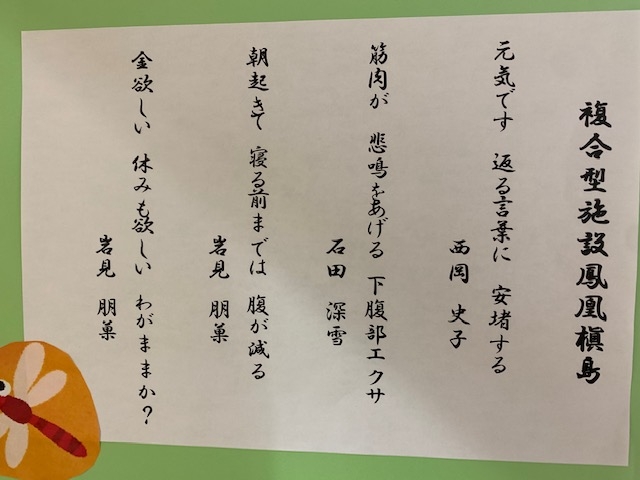 複合型施設鳳凰槇島
元気です　返る言葉に　安堵する
西岡　史子
筋肉が　悲鳴をあげる　下腹部エクサ
石田　深雪
朝起きて　寝る前までは　腹が減る
岩見　朋菓
金欲しい　休みも欲しい　わがままか？
岩見　朋菓